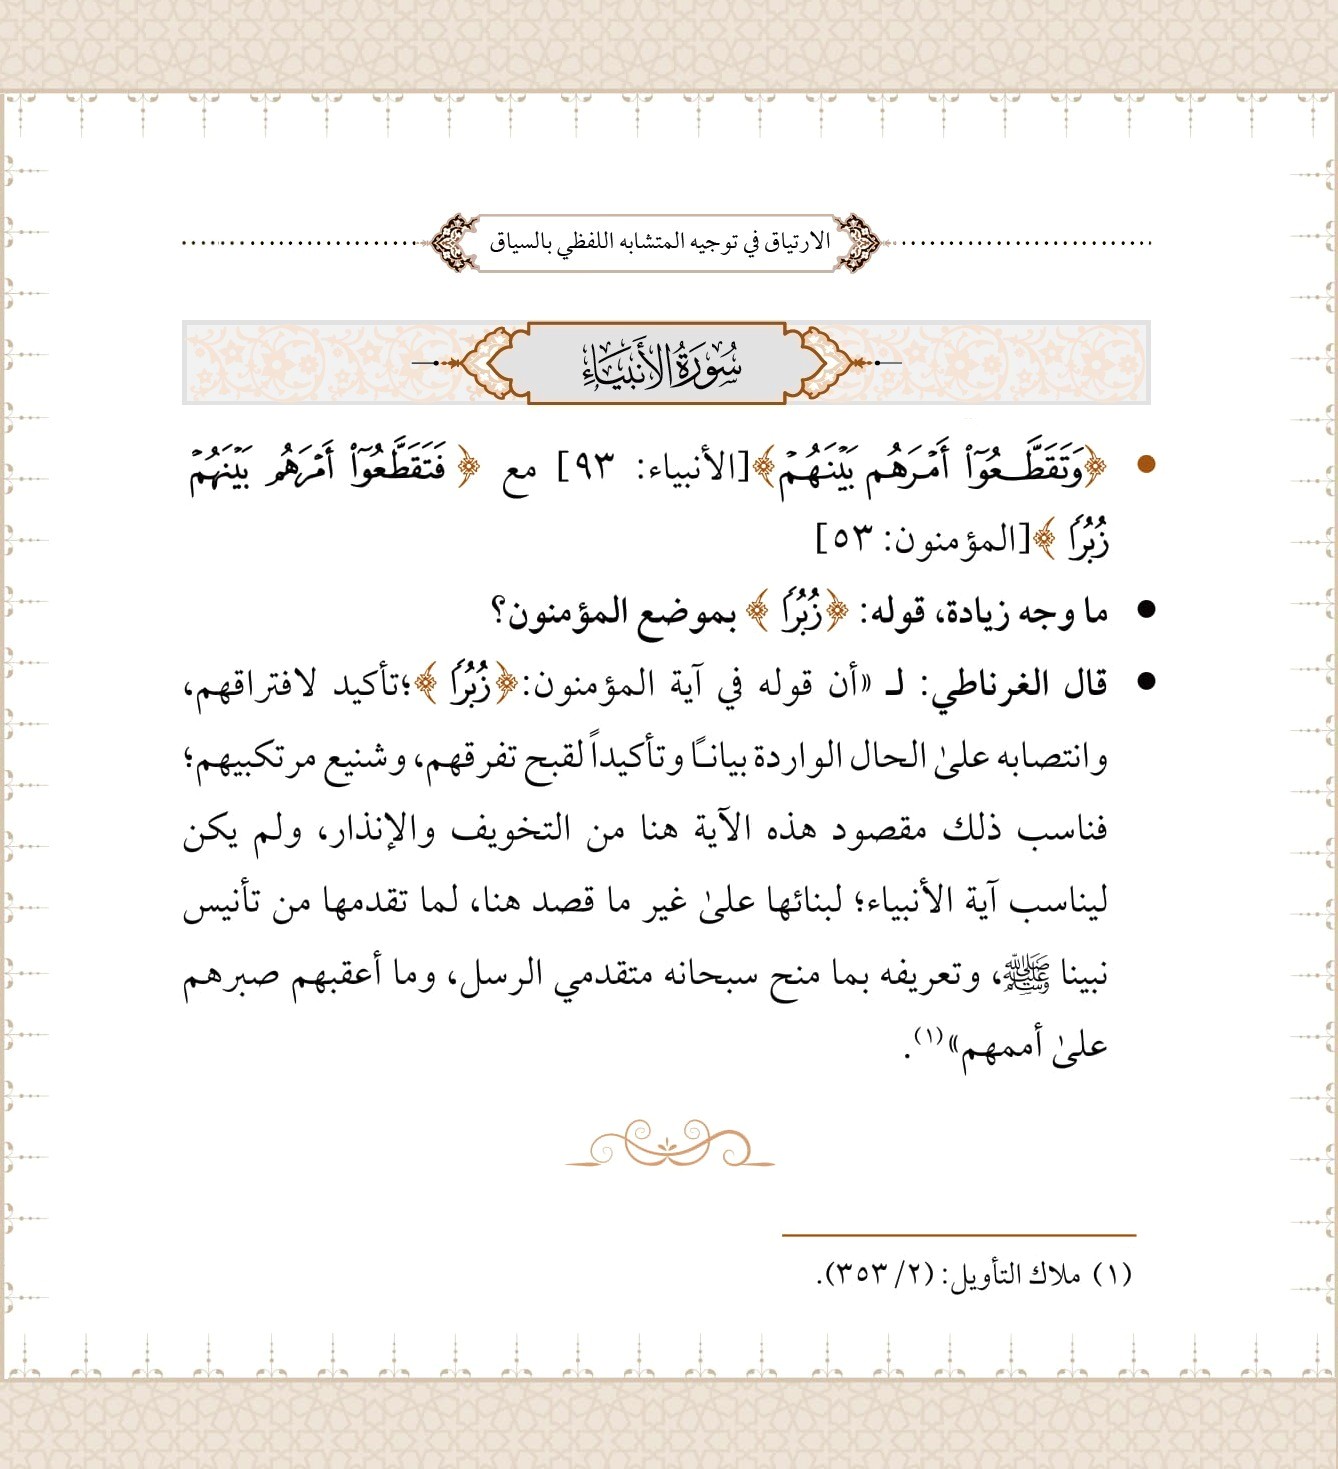 الارتياق في توجيه المتشابه اللفظي بالسياق
سُورَةُ الأَنبِيَاءِ
• ﴿وَتَقَطَّعُوٓاْ أَمۡرَهُم بَيۡنَهُمۡ﴾[الأنبياء: ٩٣] مع ﴿ فَتَقَطَّعُوٓاْ أَمۡرَهُم بَيۡنَهُمۡ
زُبُرٗا ﴾[المؤمنون: ٥٣]
• ما وجه زيادة، قوله: ﴿زُبُرٗا ﴾ بموضع المؤمنون؟
• قال الغرناطي: لـ «أن قوله في آية المؤمنون:﴿زُبُرٗا ﴾؛تأكيد لافتراقهم،
وانتصابه علىٰ الحال الواردة بيانـًا وتأكيداً لقبح تفرقهم، وشنيع مرتكبيهم؛
فناسب ذلك مقصود هذه الآية هنا من التخويف والإنذار، ولم يكن
ليناسب آية الأنبياء؛ لبنائها علىٰ غير ما قصد هنا، لما تقدمها من تأنيس
نبينا ﷺ، وتعريفه بما منح سبحانه متقدمي الرسل، وما أعقبهم صبرهم
علىٰ أممهم»(١).
(١) ملاك التأويل: (٢/ ٣٥٣).